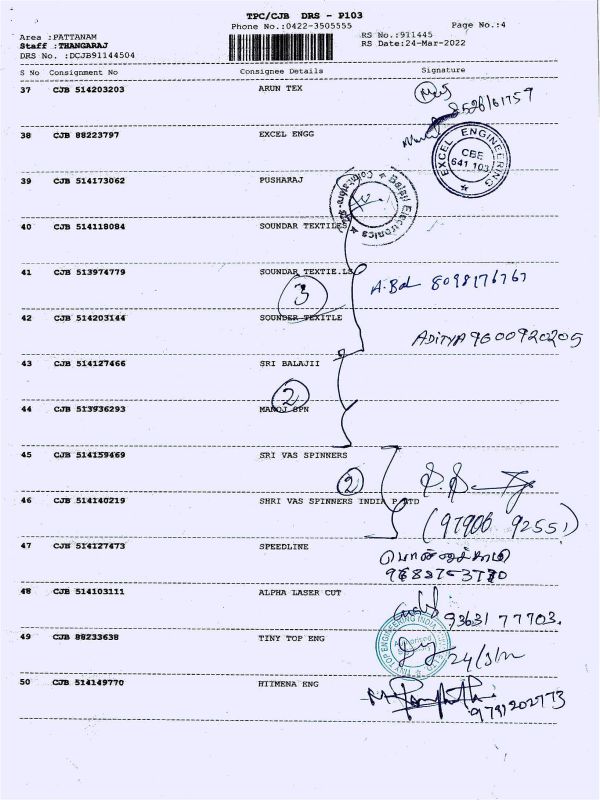 TPC/CJB DRS - P103
Phone No.:0422-3505555
Page No.:4
Area :PATTANAM
Staff :THANGARAJ
DRS No. :DCJB91144504
RS No.:911445
RS Date:24-Mar-2022
S No Consignment No Consignee Details Signature
37 CJB 514203203 ARUN TEX
38 CJB 88223797 EXCEL ENGG
EXCEL ENGINEERING
CBE
641 103
39 CJB 514173062 PUSHARAJ
Balaji Electronics
40 CJB 514118084 SOUNDAR TEXTILES
41 CJB 513974779 SOUNDAR TEXTIE.LS
A.Bal 8098176767
3
42 CJB 514203144 SOUNDER TEXITLE
ADITYA 9600920205
43 CJB 514127466 SRI BALAJII
2
44 CJB 513936293 MANOJ SPN
45 CJB 514159469 SRI VAS SPINNERS
2
46 CJB 514140219 SHRI VAS SPINNERS INDIA P LTD
(97906 92551)
47 CJB 514127473 SPEEDLINE
48 CJB 514103111 ALPHA LASER CUT
93631 77703.
49 CJB 88233638 TINY TOP ENG
TINY TOP ENGINEERING INDIA
Authorised
50 CJB 514149770 HIIMENA ENG
9791202773